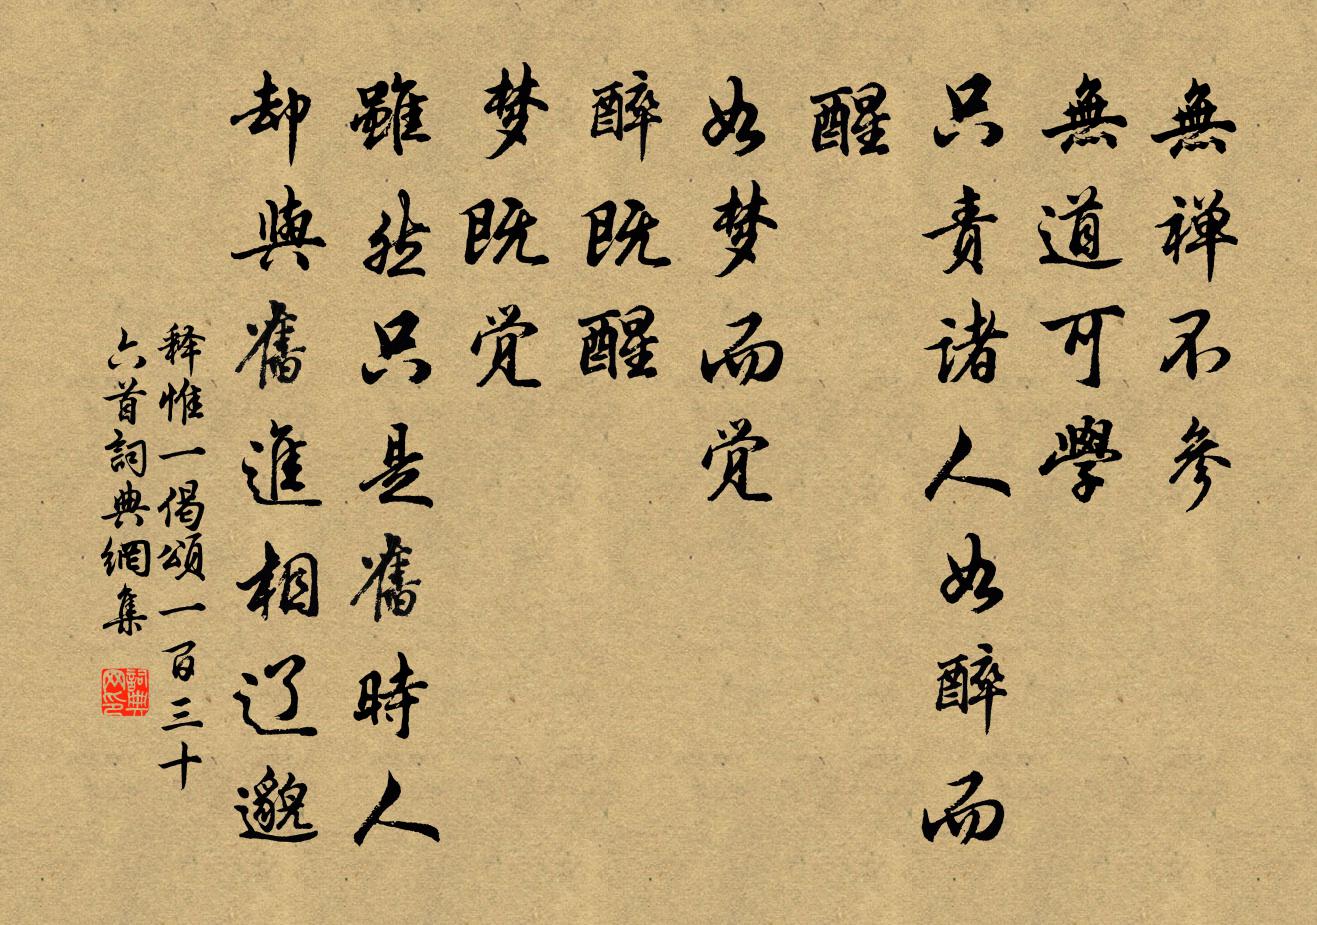 無禅不參
無道可學
只责诸人如醉而
醒
如梦而觉
醉既醒
梦既觉
雖然只是舊時人
却與舊進相辽邈
释惟一偈頌一百三十
六首詞典網集
詞典
网印